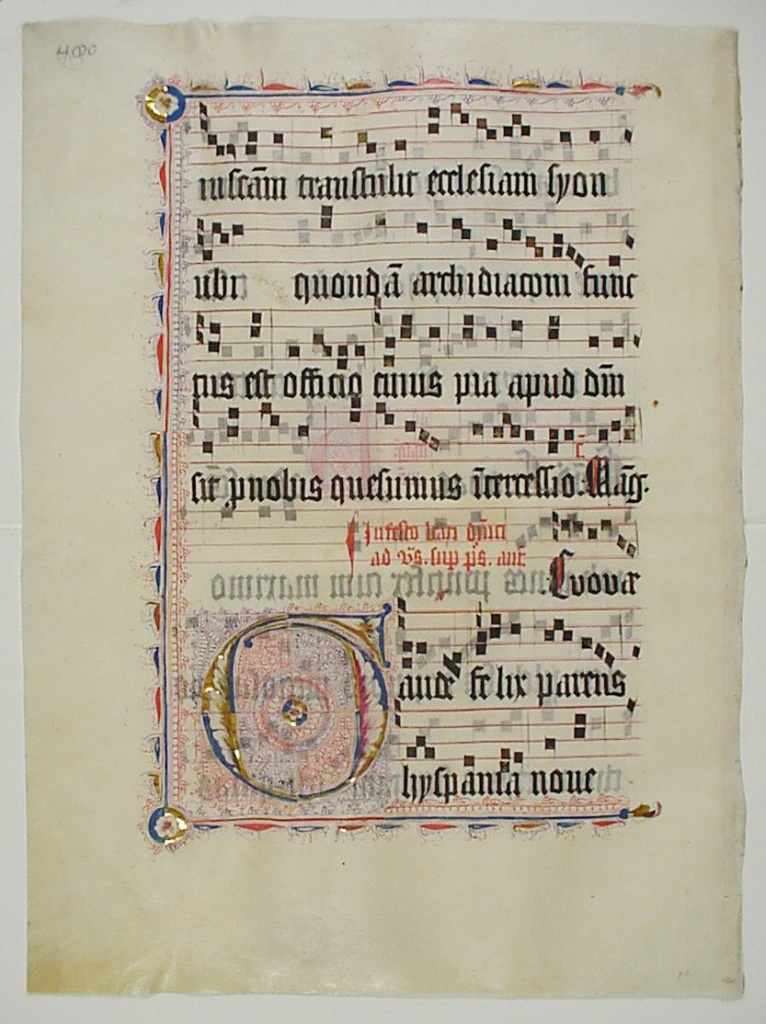 4000
iusta͞m transtulit ecclesiam syon
ubi quonda͞ archidiaconi func
tus est officio cuius pia apud dn͞m
sit pnobis quesumus i͞tercessio. Ma͞g.
In festo beati d͞nici
ad v͞s. sup p͞s. ant
Evovæ
Gaude felix parens
hyspania noue